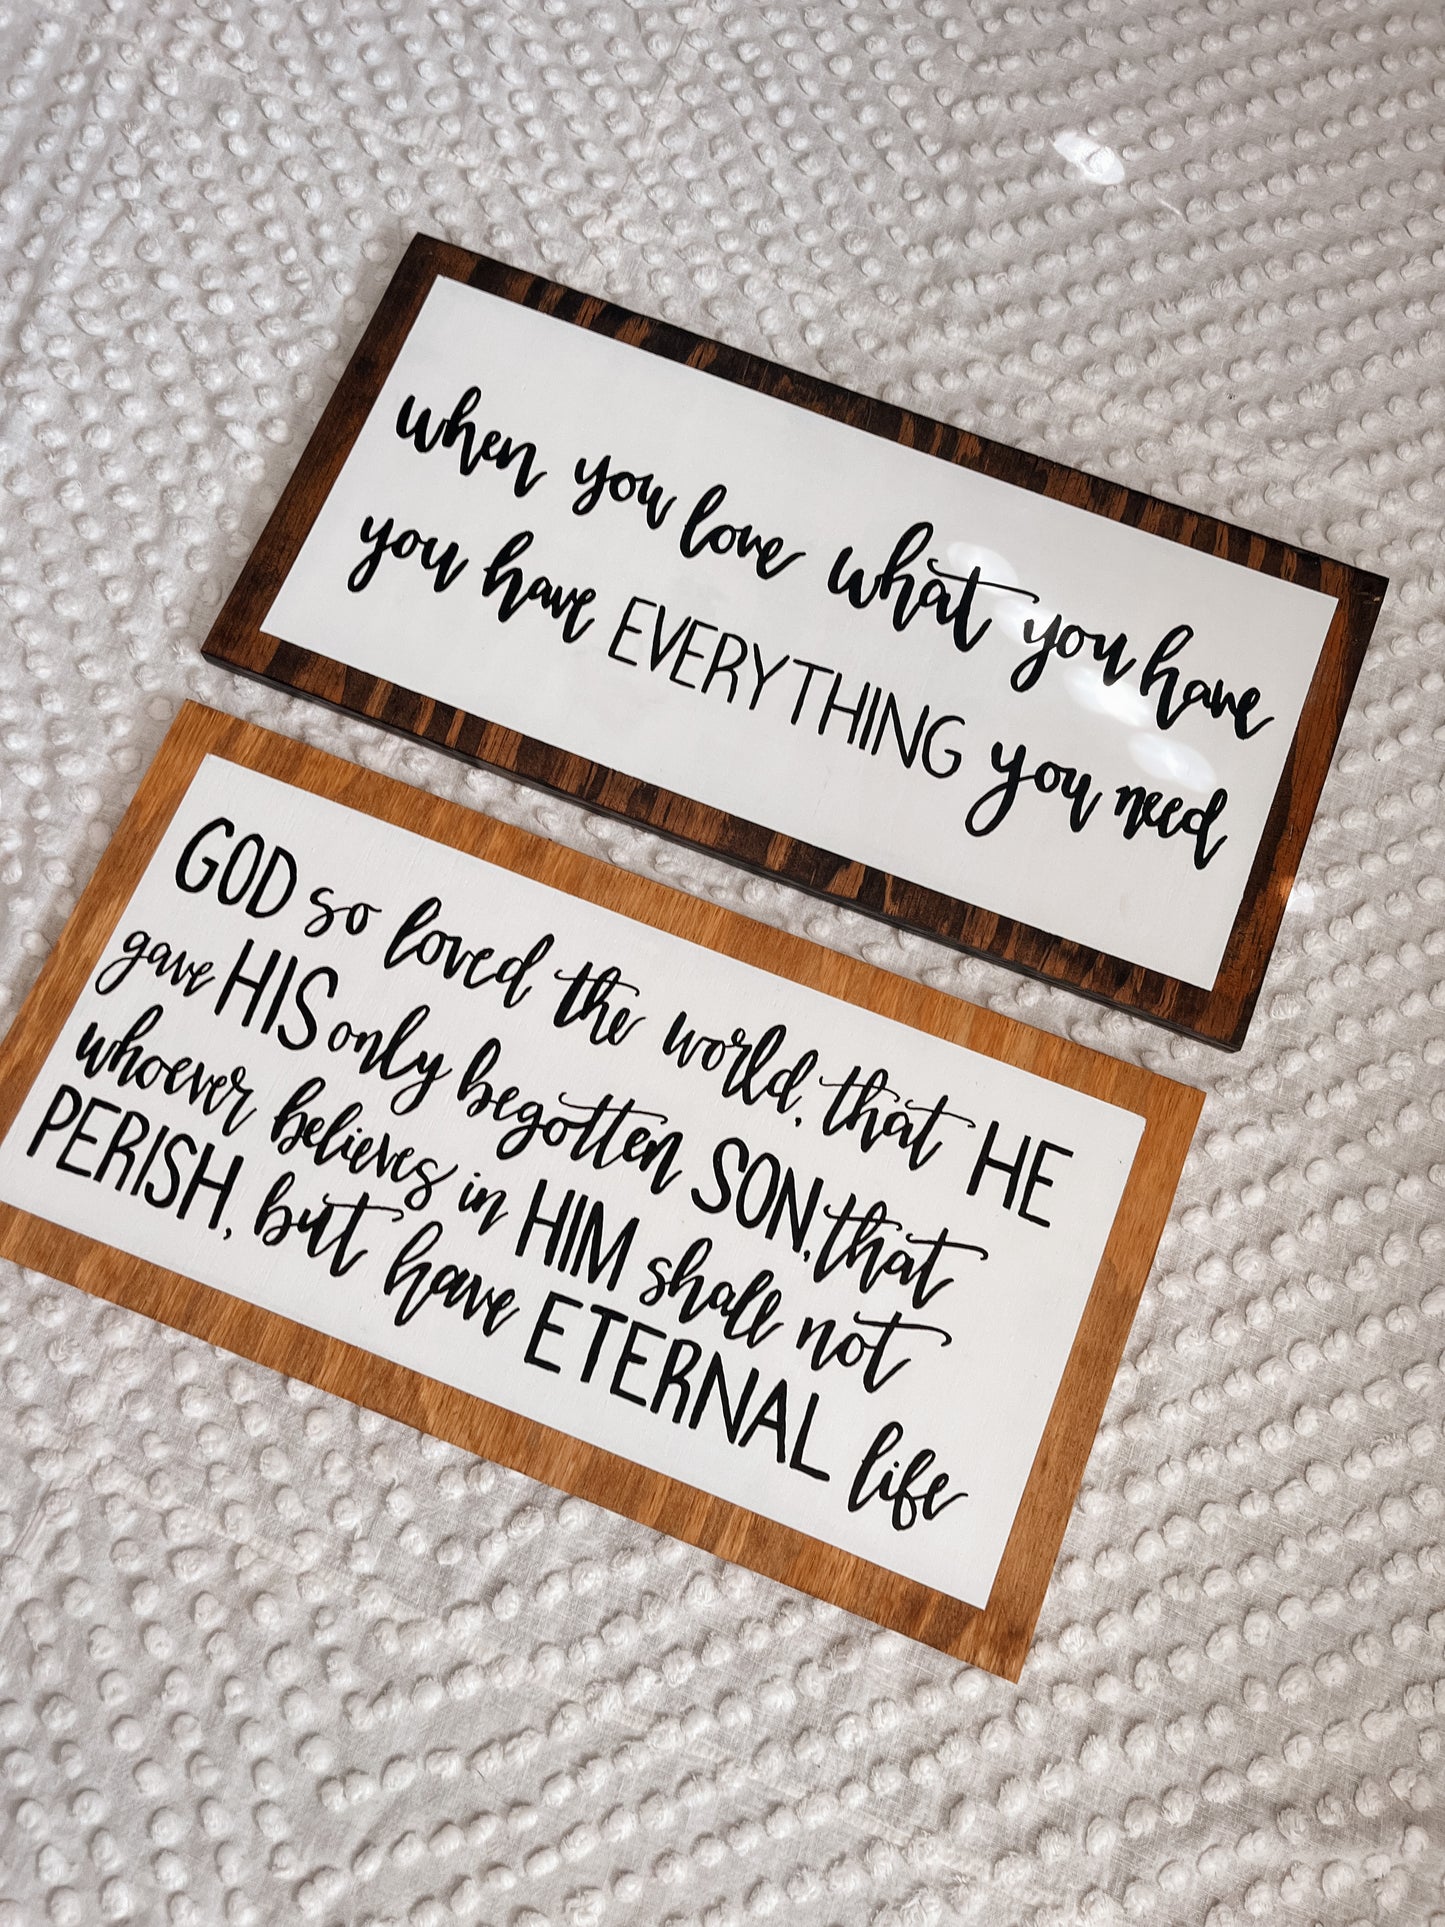 when you love what you have
you have EVERYTHING you need
GOD so loved the world, that HE
gave HIS only begotten SON, that
whoever believes in HIM shall not
PERISH, but have ETERNAL life